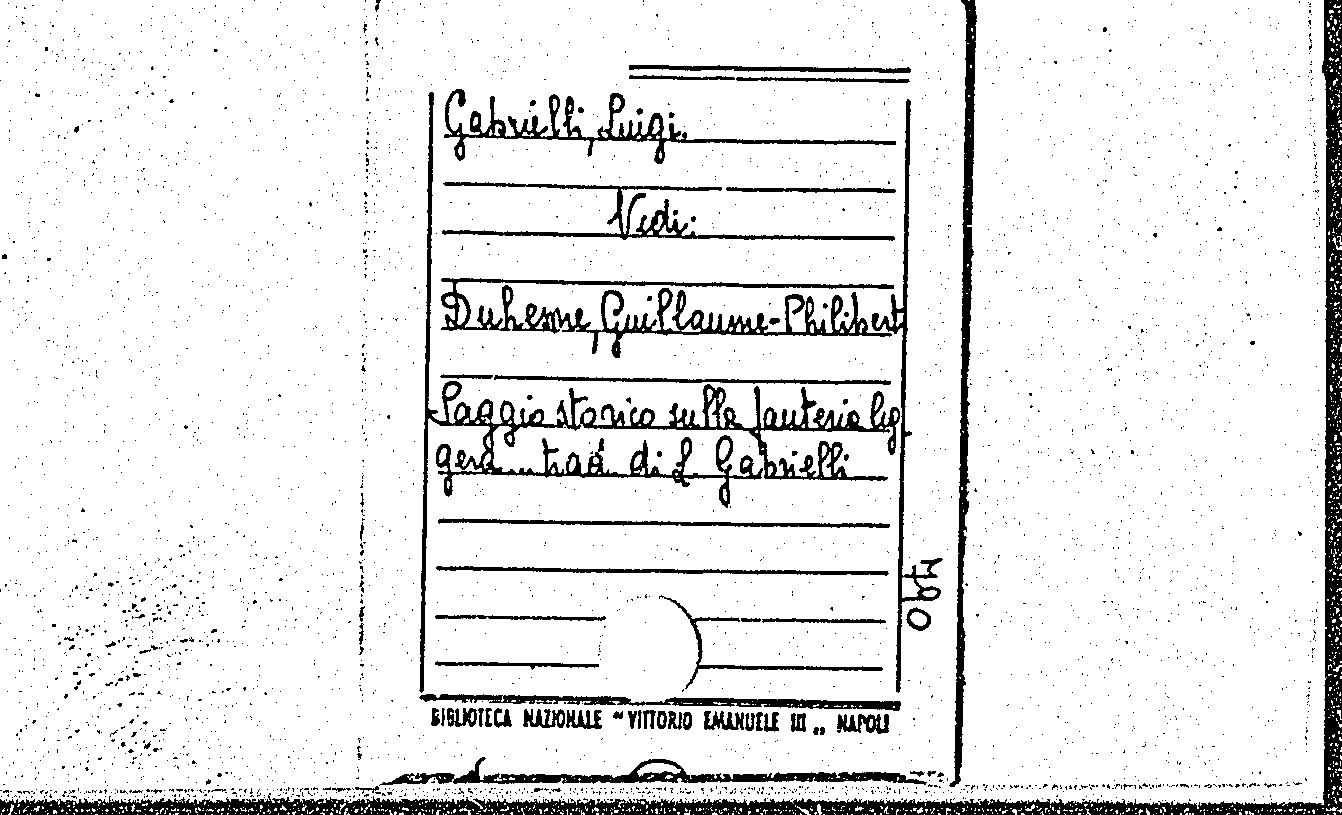 Gabrielli, Luigi.
Vedi:
Duhesme, Guillaume-Philibert
Saggio storico sulla fanteria leg
gera... trad. di L. Gabrielli
BIBLIOTECA NAZIONALE "VITTORIO EMANUELE III„ NAPOLI